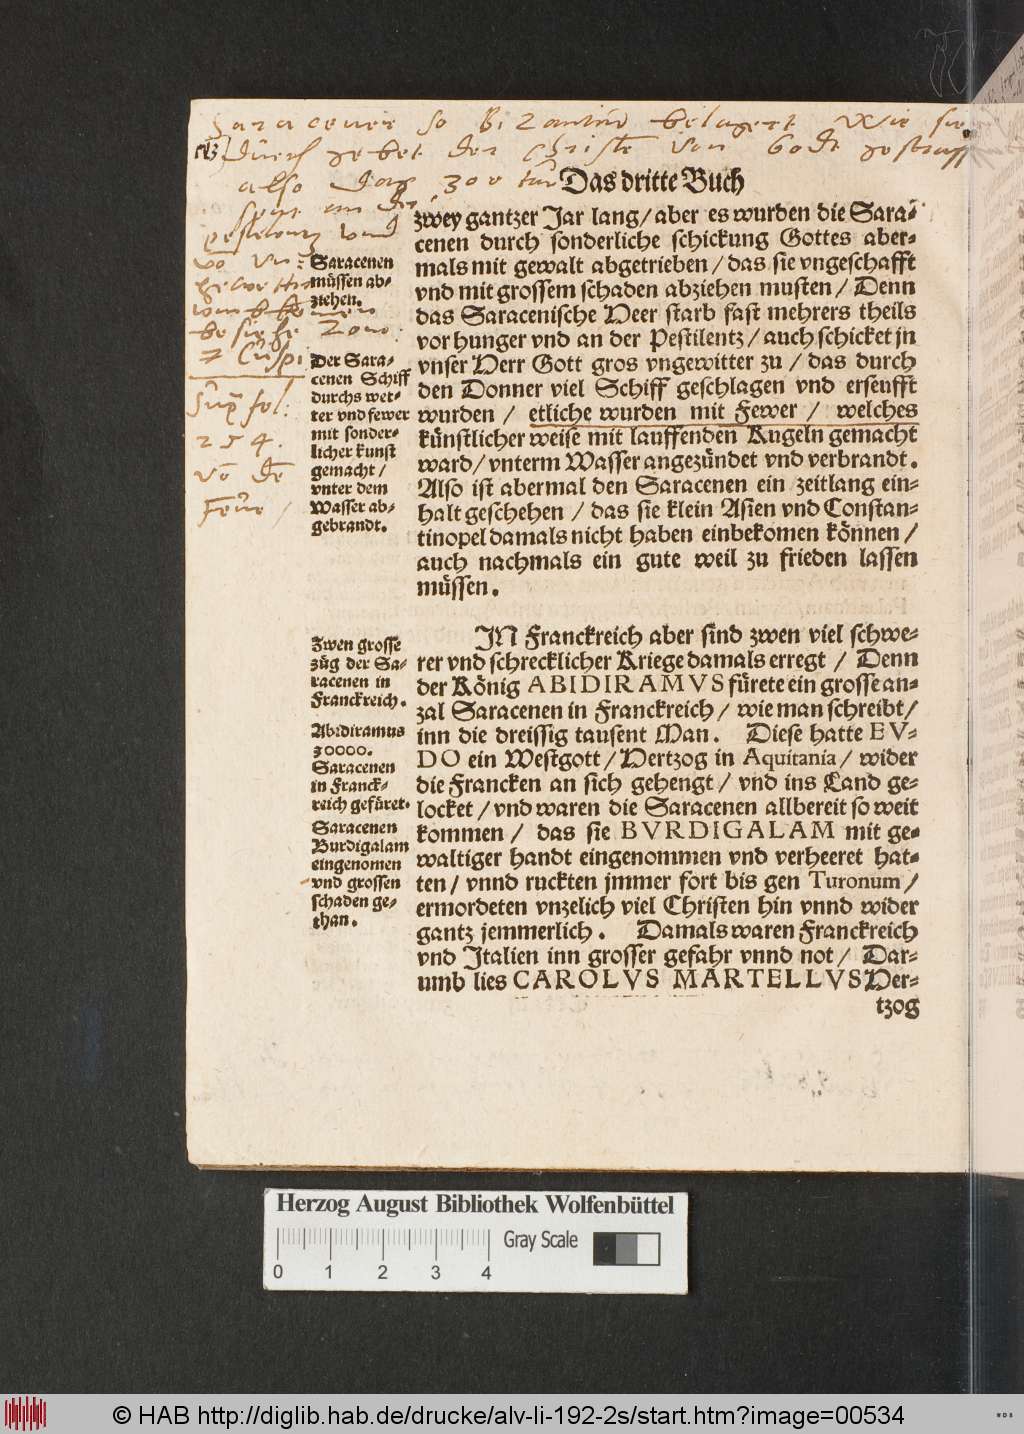 Saracener so Bizantiũ belagert Wie sie
durch gebet der Christẽ von Godt gestraff
also das 300
Das dritte Buch
zwey gantzer Jar lang/ aber es wurden die Sara-
cenen durch sonderliche schickung Gottes aber-
mals mit gewalt abgetrieben/ das sie vngeschafft
vnd mit grossem schaden abziehen musten/ Denn
das Saracenische Heer starb fast mehrers theils
vor hunger vnd an der Pestilentz/ auch schicket jn
vnser Herr Gott gros vngewitter zu/ das durch
den Donner viel Schiff geschlagen vnd erseufft
wurden/ etliche wurden mit Fewer/ welches
künstlicher weise mit lauffenden Kugeln gemacht
ward/ vnterm Wasser angezündet vnd verbrandt.
Also ist abermal den Saracenen ein zeitlang ein-
halt geschehen/ das sie klein Asien vnd Constan-
tinopel damals nicht haben einbekomen können/
auch nachmals ein gute weil zu frieden lassen
müssen.
Saracenen
müssen ab-
ziehen.
Der Sara-
cenen Schiff
durchs wet-
ter vnd fewer
mit sonder-
licher kunst
gemacht/
vnter dem
Wasser ab-
gebrandt.
pestelentz vnd
besiehe Zon
fol:
254.
võ dẽ
IN Franckreich aber sind zwen viel schwe-
rer vnd schrecklicher Kriege damals erregt/ Denn
der König ABIDIRAMVS fürete ein grosse an-
zal Saracenen in Franckreich/ wie man schreibt/
inn die dreissig tausent Man. Diese hatte EV-
DO ein Westgott/ Hertzog in Aquitania/ wider
die Francken an sich gehengt/ vnd ins Land ge-
locket/ vnd waren die Saracenen allbereit so weit
kommen/ das sie BVRDIGALAM mit ge-
waltiger handt eingenommen vnd verheeret hat-
ten/ vnnd ruckten jmmer fort bis gen Turonum/
ermordeten vnzelich viel Christen hin vnnd wider
gantz jemmerlich. Damals waren Franckreich
vnd Italien inn grosser gefahr vnnd not/ Dar-
umb lies CAROLVS MARTELLVS Her-
tzog
Zwen grosse
züg der Sa-
racenen in
Franckreich.
Abidiramus
30000.
Saracenen
in Franck-
reich gefüret.
Saracenen
Burdigalam
eingenomen
vnd grossen
schaden ge-
than.
Herzog August Bibliothek Wolfenbüttel
Gray Scale
0 1 2 3 4
© HAB http://diglib.hab.de/drucke/alv-li-192-2s/start.htm?image=00534